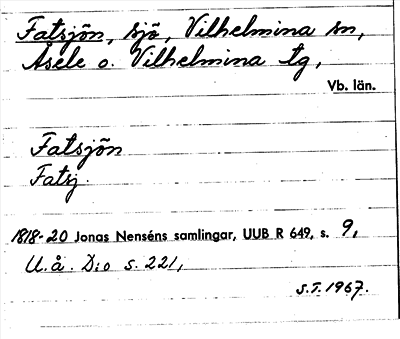 Fatsjön, sjö, Vilhelmina sn,
Åsele o. Vilhelmina tg,
Vb. län.
Fatsjön
Fatsj.
1818-20 Jonas Nenséns samlingar, UUB R 649, s. 9,
U.å. D:o s. 221,
S.T. 1967.